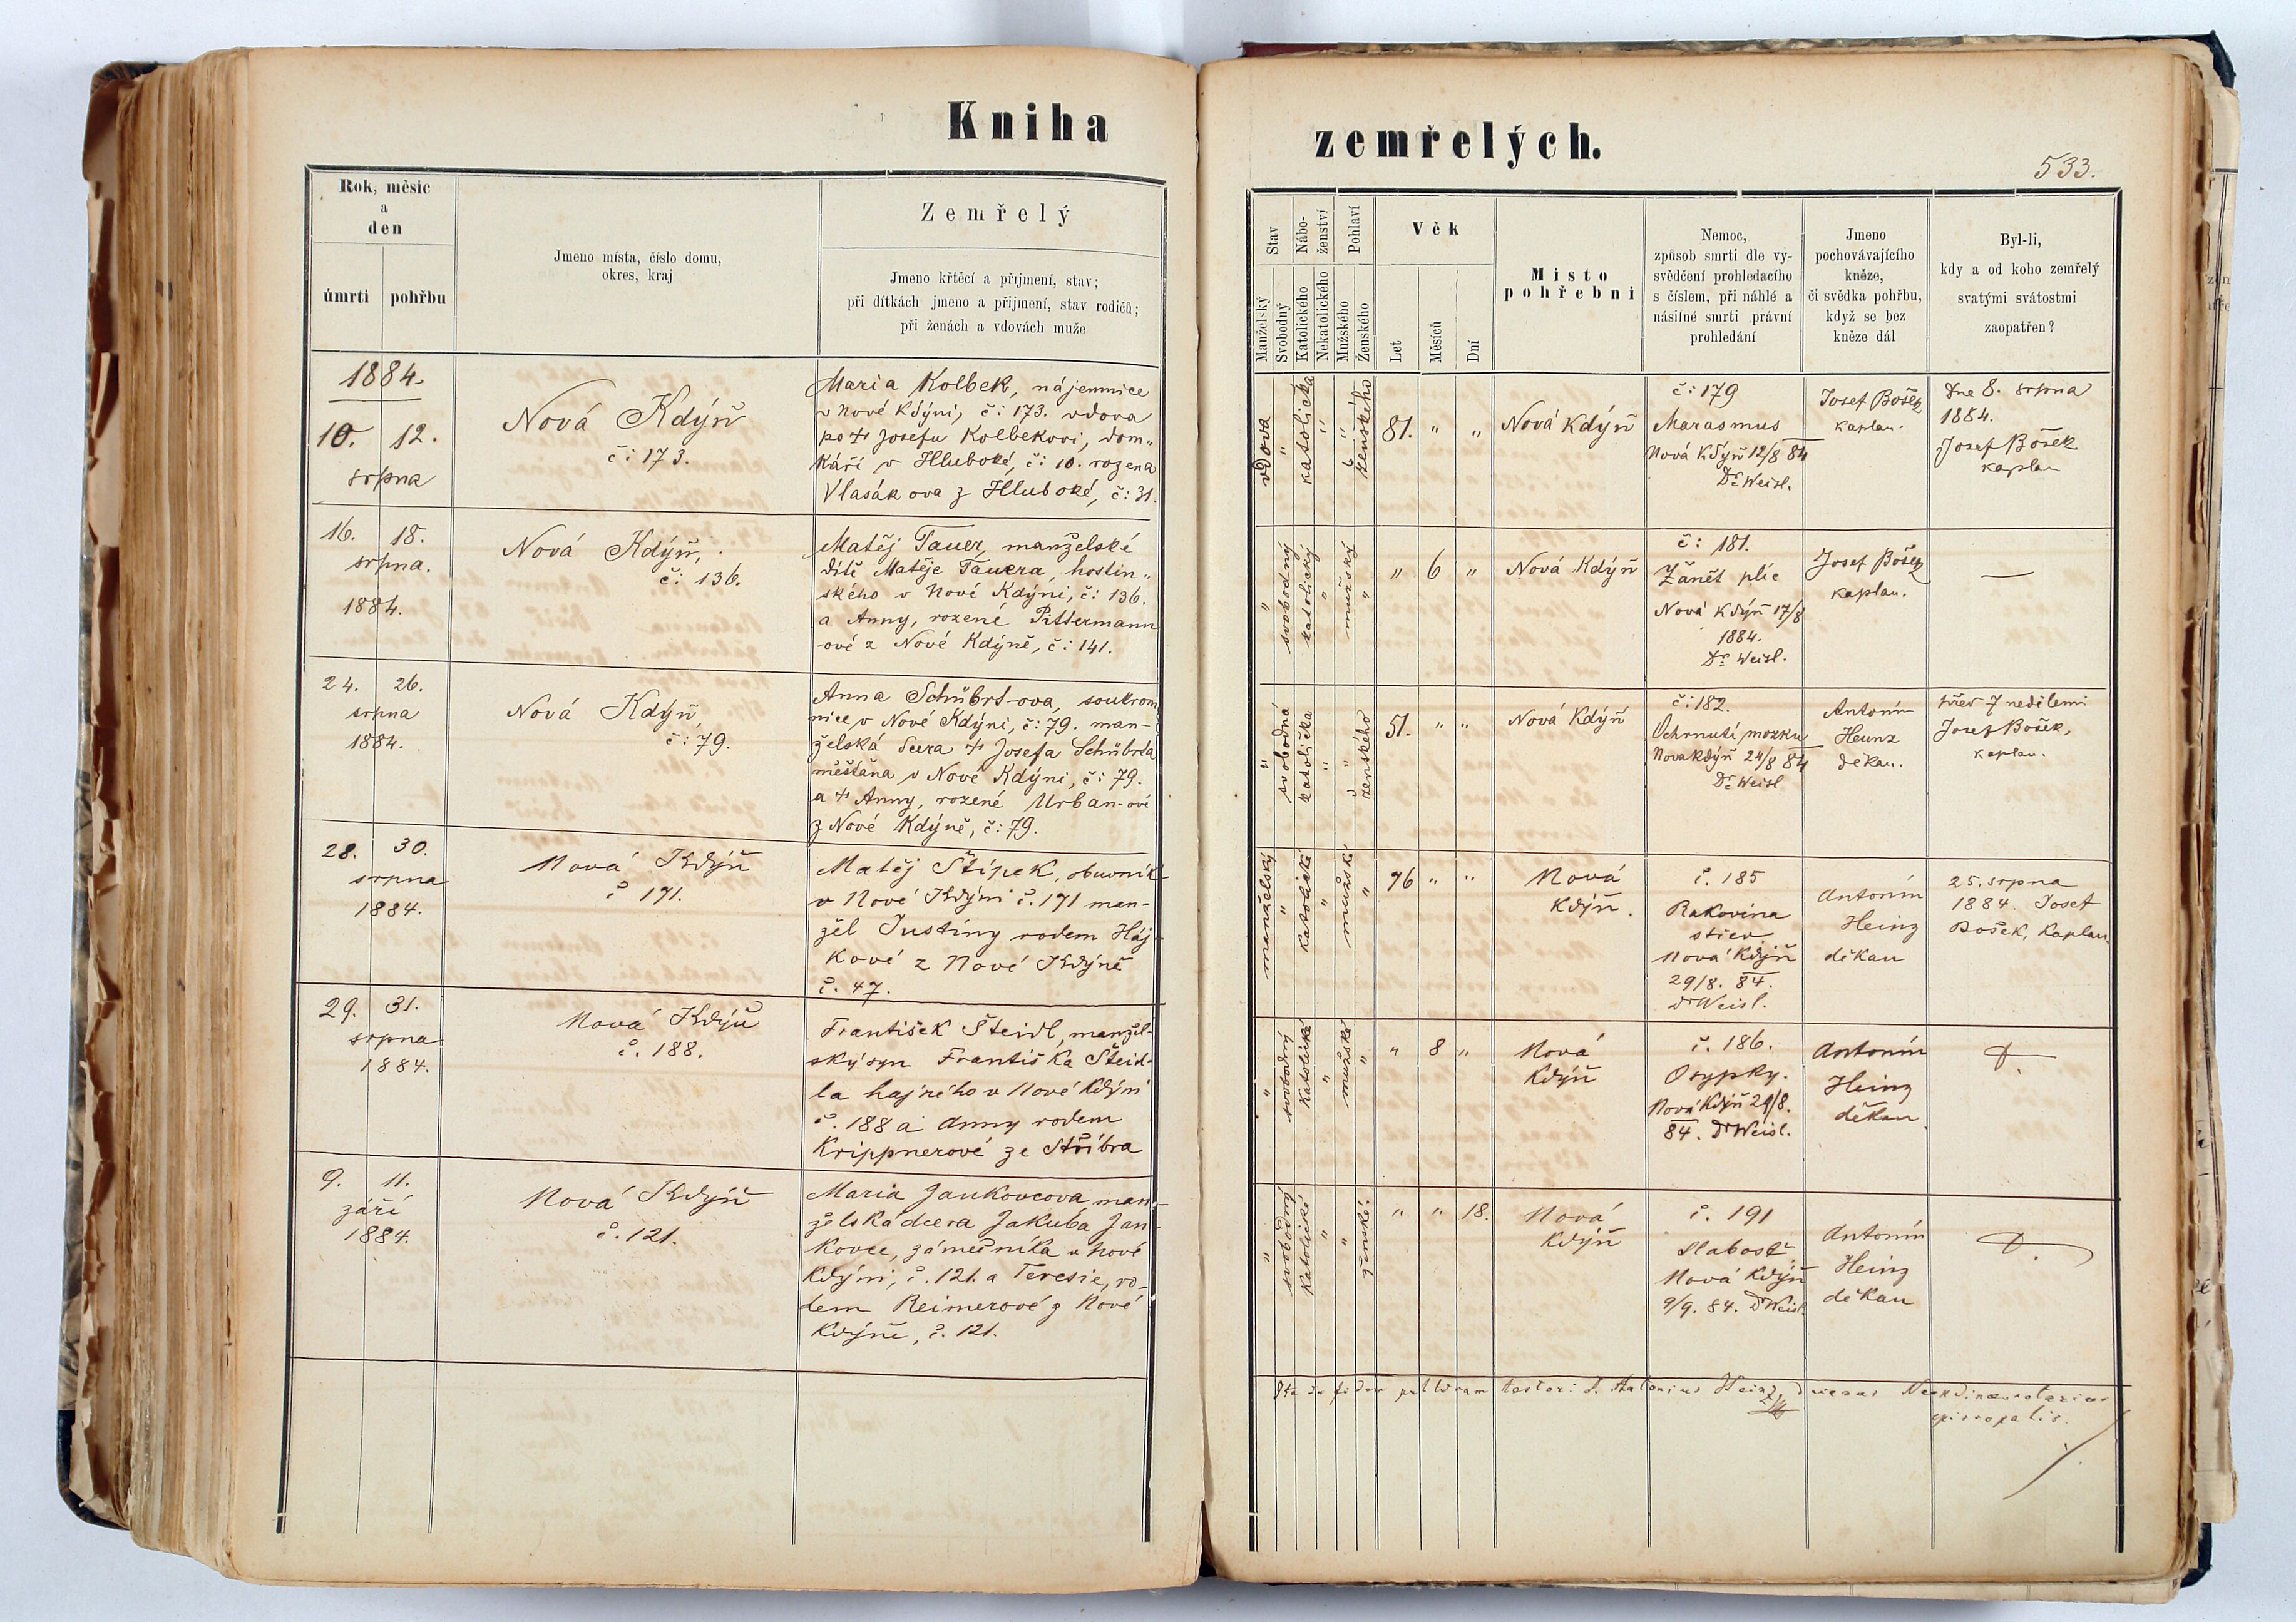 Kniha
Rok, měsíc
a
den
úmrti
pohřbu
Jmeno místa, číslo domu,
okres, kraj
Zemřelý
Jmeno křtěcí a přijmení, stav;
při dítkách jmeno a přijmení, stav rodičů;
při ženách a vdovách muže
1884.
10. 12.
srpna
Nová Kdýň
č: 173.
Maria Kolbek, nájemnice
v Nové Kdýni, č: 173. vdova
po + Josefu Kolbekovi, dom„
káři v Hluboké, č: 10. rozena
Vlasákova z Hluboké, č: 31.
16. 18.
srpna.
1884.
Nová Kdýň,
č: 136.
Matěj Tauer, manželské
dítě Matěje Tauera, hostin„
ského v Nové Kdýni, č: 136.
a Anny, rozené Pittermann
-ové z Nové Kdýně, č: 141.
24. 26.
srpna
1884.
Nová Kdýň,
č: 79.
Anna Schübrt-ova, soukrom
nice v Nové Kdýni, č: 79. man-
želská dcera + Josefa Schübrta
měšťana v Nové Kdýni, č: 79.
a + Anny, rozené Urban-ové
z Nové Kdýně, č: 79.
28. 30.
srpna
1884.
Nová Kdýň
č 171.
Matěj Štípek, obuvník
v Nové Kdýni č. 171 man-
žel Justiny rodem Háj-
kové z Nové Kdýně
č. 47.
29. 31.
srpna
1884.
Nová Kdýň
č. 188.
František Šteidl, manžel-
ský syn Františka Šteid-
la hajného v Nové Kdýni
č. 188 a Anny rodem
Krippnerové ze Stříbra
9. 11.
září
1884.
Nová Kdýň
č. 121.
Maria Jankovcova, man-
želská dcera Jakuba Jan-
kovce, zámečníka v Nové
Kdýni, č. 121. a Teresie, ro-
dem Reimerové z Nové
Kdýně, č. 121.
zemřelých.
533.
Stav
Nábo-
ženství
Pohlaví
Věk
Manželský
Svobodný
Katolického
Nekatolického
Mužského
Ženského
Let
Měsíců
Dní
Místo
pohřebni
Nemoc,
způsob smrti dle vy-
svědčení prohledacího
s číslem, při náhlé a
násilné smrti právní
prohledání
Jmeno
pochovávajícího
kněze,
či svědka pohřbu,
když se bez
kněze dál
Byl-li,
kdy a od koho zemřelý
svatými svátostmi
zaopatřen?
vdova
„
katolička
„
„
ženského
81. „ „
Nová Kdýň
č: 179
Marasmus
Nová Kdýň 12/8 84
Dr Weisl.
Josef Bošek
kaplan.
Dne 8. srpna
1884.
Josef Bošek
kaplan
„
svobodný
katolický
„
mužský
„
„ 6 „
Nová Kdýň
č: 181.
Zánět plic
Nová Kdýň 17/8
1884.
Dr Weisl.
Josef Bošek
kaplan.
—
„
svobodná
katolička
„
„
ženského
51. „ „
Nová Kdýň
č: 182.
Ochrnutí mozku
Nova Kdýň 24/8 84
Dr Weisl
Antonín
Heinz
děkan.
před 7 nedělemi
Josef Bošek,
kaplan.
manželský
„
katolické
„
mužské
„
76 „ „
Nová
Kdýň.
č. 185
Rakovina
střev
Nová Kdýň
29/8. 84.
Dr Weisl.
Antonín
Heinz
děkan
25. srpna
1884. Josef
Bošek, Kaplan.
„
svobodný
katolické
„
mužské
„
„ 8 „
Nová
Kdýň
č. 186.
Osypky.
Nová Kdýň 29/8.
84. Dr Weisl.
Antonín
Heinz
děkan
„
svobodný
Katolické
„
„
ženské.
„ „ 18.
Nová
Kdýň
č. 191
Slabost
Nová Kdýň
9/9. 84. Dr Weisl.
Antonín
Heinz
děkan
Antonius Heinz,
episcopalis.